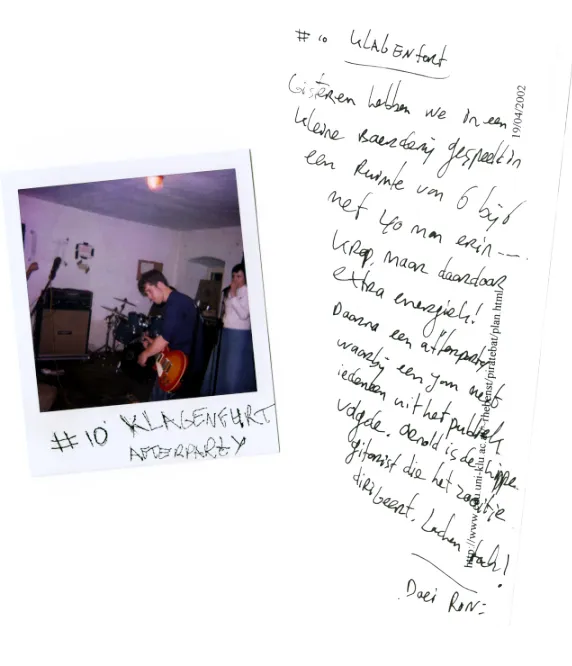 #10 KLAGENFURT
AFTERPARTY
#10 KLAGENfurt
Gisteren hebben we in een
kleine Boerderij gespeeld in
een Ruimte van 6 bij 6
met 40 man erin ---.
krap, maar daardoor
extra energiek!
Daarna een afterparty
waarbij een jam met
iedereen uit het publiek
volgde. Arnold is de hippe
gitarist die het zooitje
dirigeert. Lachen toch!
Doei Ron:
19/04/2002
uni-klu.ac.
thebenst/piratebat/plan.html